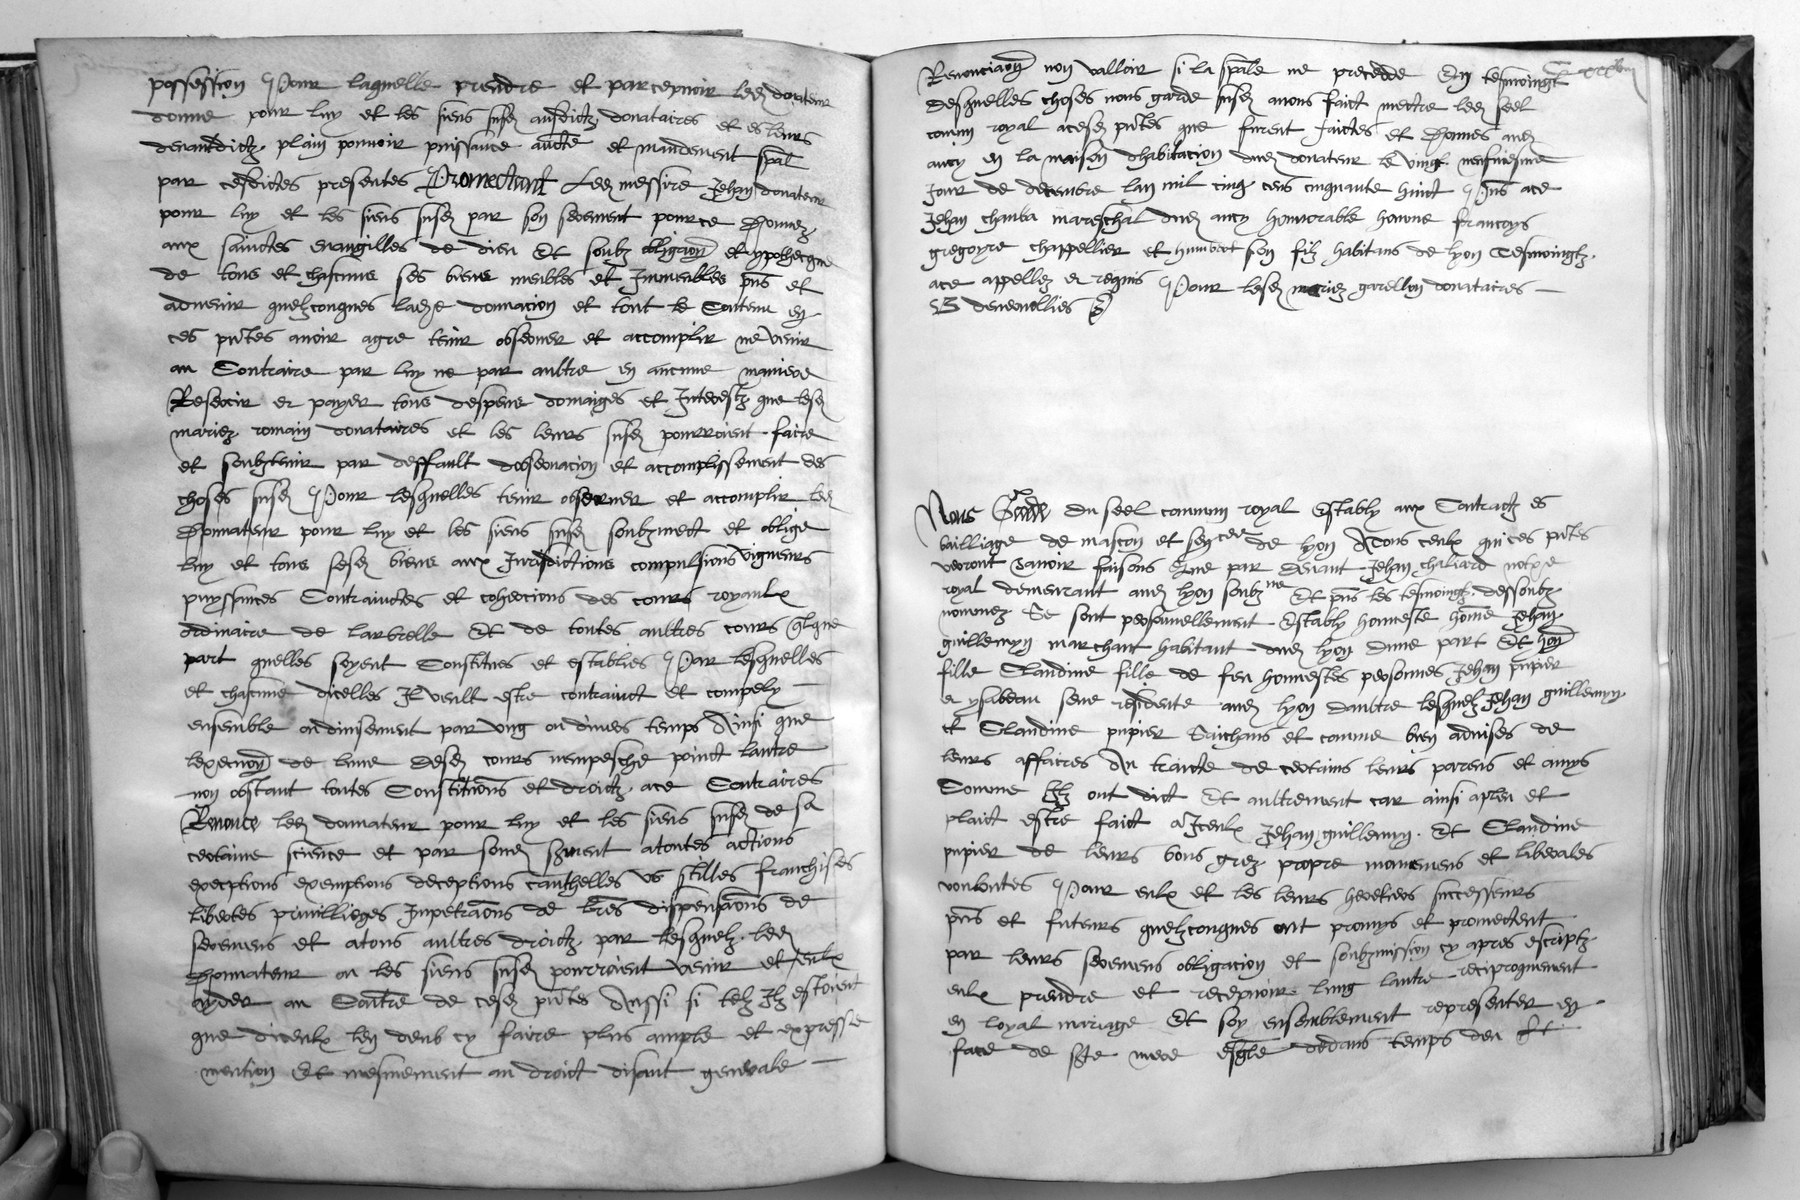 possession Pour laquelle prendre et parcepvoir led donateur
donne pour luy et les siens susd ausdictz donataires et es leurs
devantdictz plain pouvoir puissance aucte et mandement spal
par cesdictes presentes Promectant Led messire Jehan donateur
pour luy et les siens susd par son serement pour ce donnez
aux sainctes evangilles de dieu Et soubz obligaon et ypothecque
de tous et chascuns ses biens meubles et Immeubles pns et
advenir quelzconques lad donnacion et tout le Contenu en
ces pntes avoir agre tenir observer et accomplir ne venir
au Contraire par luy ne par aultre en aucune maniere
Reservoir et payer tous despens domaiges et Interestz que lesd
mariez romain donataires et les leurs susd pourroient faire
et soubztenir par deffault dobservacion et accomplissement des
choses susd Pour lesquelles tenir observer et accomplir led
Donnateur pour luy et les siens susd soubzmect et oblige
luy et tous sesd biens aux Jurisdictions compulsions vigueurs
puyssances Contrainctes et cohercions des cours royaulx
ordinaire de larbrelle Et de toutes aultres cours qlque
part quelles soyent Constitues et establies Par lesquelles
et chascune dicelles Il veult estre contrainct et compely
ensemble ou divisement par ung ou divers temps Ainsi que
lexecuon de lune desd cours nempesche point lautre
non obstant toutes Constituons et droictz ace Contraires
Renonce led donnateur pour luy et les siens susd de sa
certaine science et par sond serment atoutes actions
exeptions exemptions deceptions cauthelles us stilles franchises
libertes privillieges Inpetraons de lres dispensaons de
seremens et atous aultres droictz par lesquelz led
Donnateur ou les siens susd pourroient venir et eulx
ayder au Contre de cesd pntes Aussi si telz Ilz estoient
que diceulx len deub cy faire plus ample et expresse
mention Et mesmement au droict disant generale
Renonciaon non valloir si la spale ne precedde En tesmoingt
desquelles choses nous garde susd avons faict mectre led seel
comun royal acesd pntes que furent faictes et donnes aud
ancy en la maison dhabitacion dud donateur le vingt neufviesme
Jour de decembre lan mil cinq cens cinquante huict Pns ace
Jehan chanba mareschal dud ancy honnorable homme francoys
gregoyre chappellier et humbert son filz habitans de lyon Tesmoingtz
ace appellez et requis Pour lesd mariez garellon donataires
Nous Garde du seel commun royal Estably aux Contractz es
bailliage de mascon et sencee de lyon Atous ceulx qui ces pntes
verront Savoir faisons Que par devant Jehan chaliard notre
royal demeurant aud lyon soubzne Et pns les tesmoingtz dessoubz
nommez Se sont personnellement Estably honneste home Jehan
guillemyn marchant habitant dud lyon dune part Et hon
fille Claudine fille de feu honnestes personnes Jehan pupier
et ysabeau seve residente aud lyon daultre lesquelz Jehan guillemyn
et Claudine pupier Saichans et comme bien advises de
leurs affaires Au traicte de certains leurs parens et amys
Comme Ilz ont dict Et aultrement car ainsi apleu et
plaict estre faict a Iceulx Jehan guillemyn Et Claudine
pupier de leurs bons grez propre mouvemens et liberales
voulentes Pour eulx et les leurs heretiers successeurs
pns et futeurs quelzconques ont promys et promectent
par leurs seremens obligacion et soubzmission cy apres escriptz
eulx prendre et recepvoir lung lautre reciproquement
en loyal mariage Et soy ensemblement representer en
face de ste mere esgle dedans temps deu Et